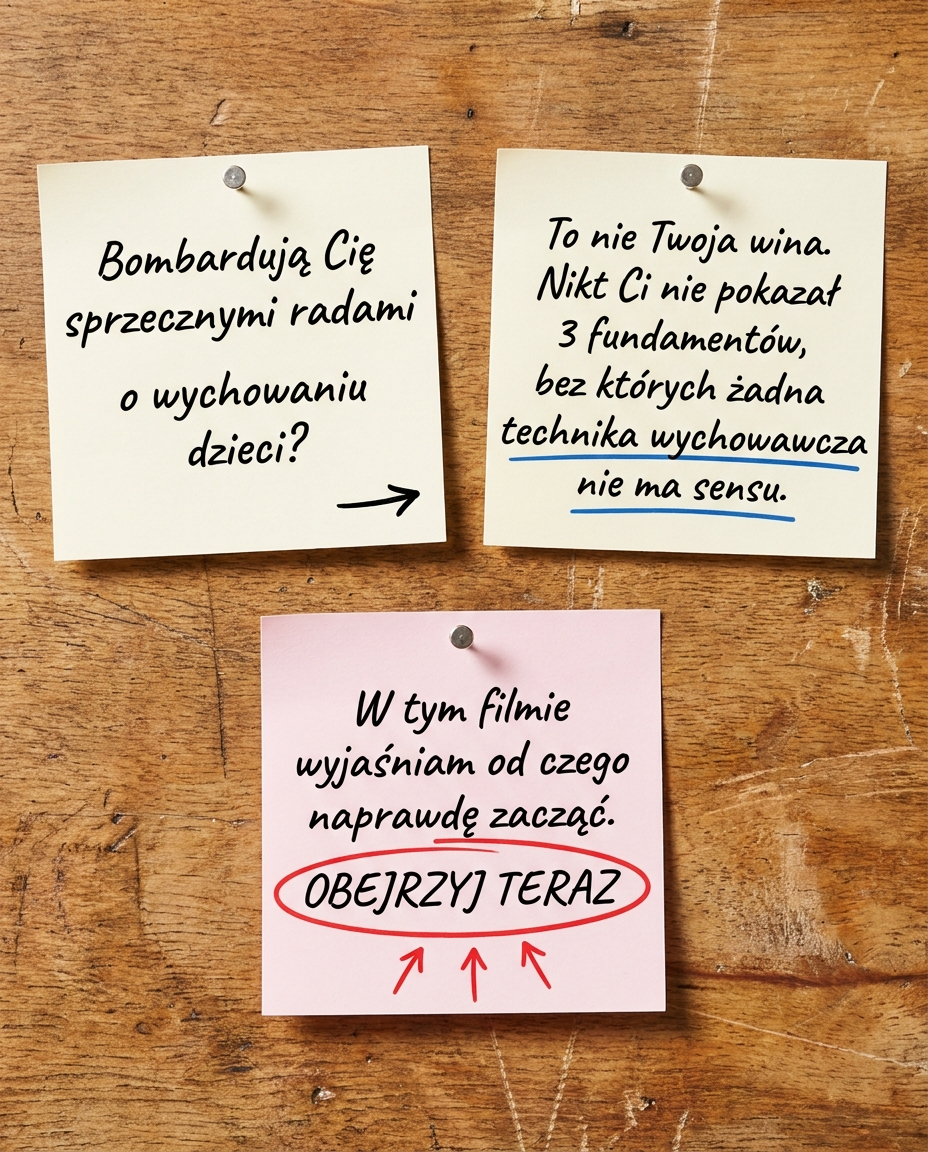 Bombardują Cię
sprzecznymi radami
o wychowaniu
dzieci?
To nie Twoja wina.
Nikt Ci nie pokazał
3 fundamentów,
bez których żadna
technika wychowawcza
nie ma sensu.
W tym filmie
wyjaśniam od czego
naprawdę zacząć.
OBEJRZYJ TERAZ